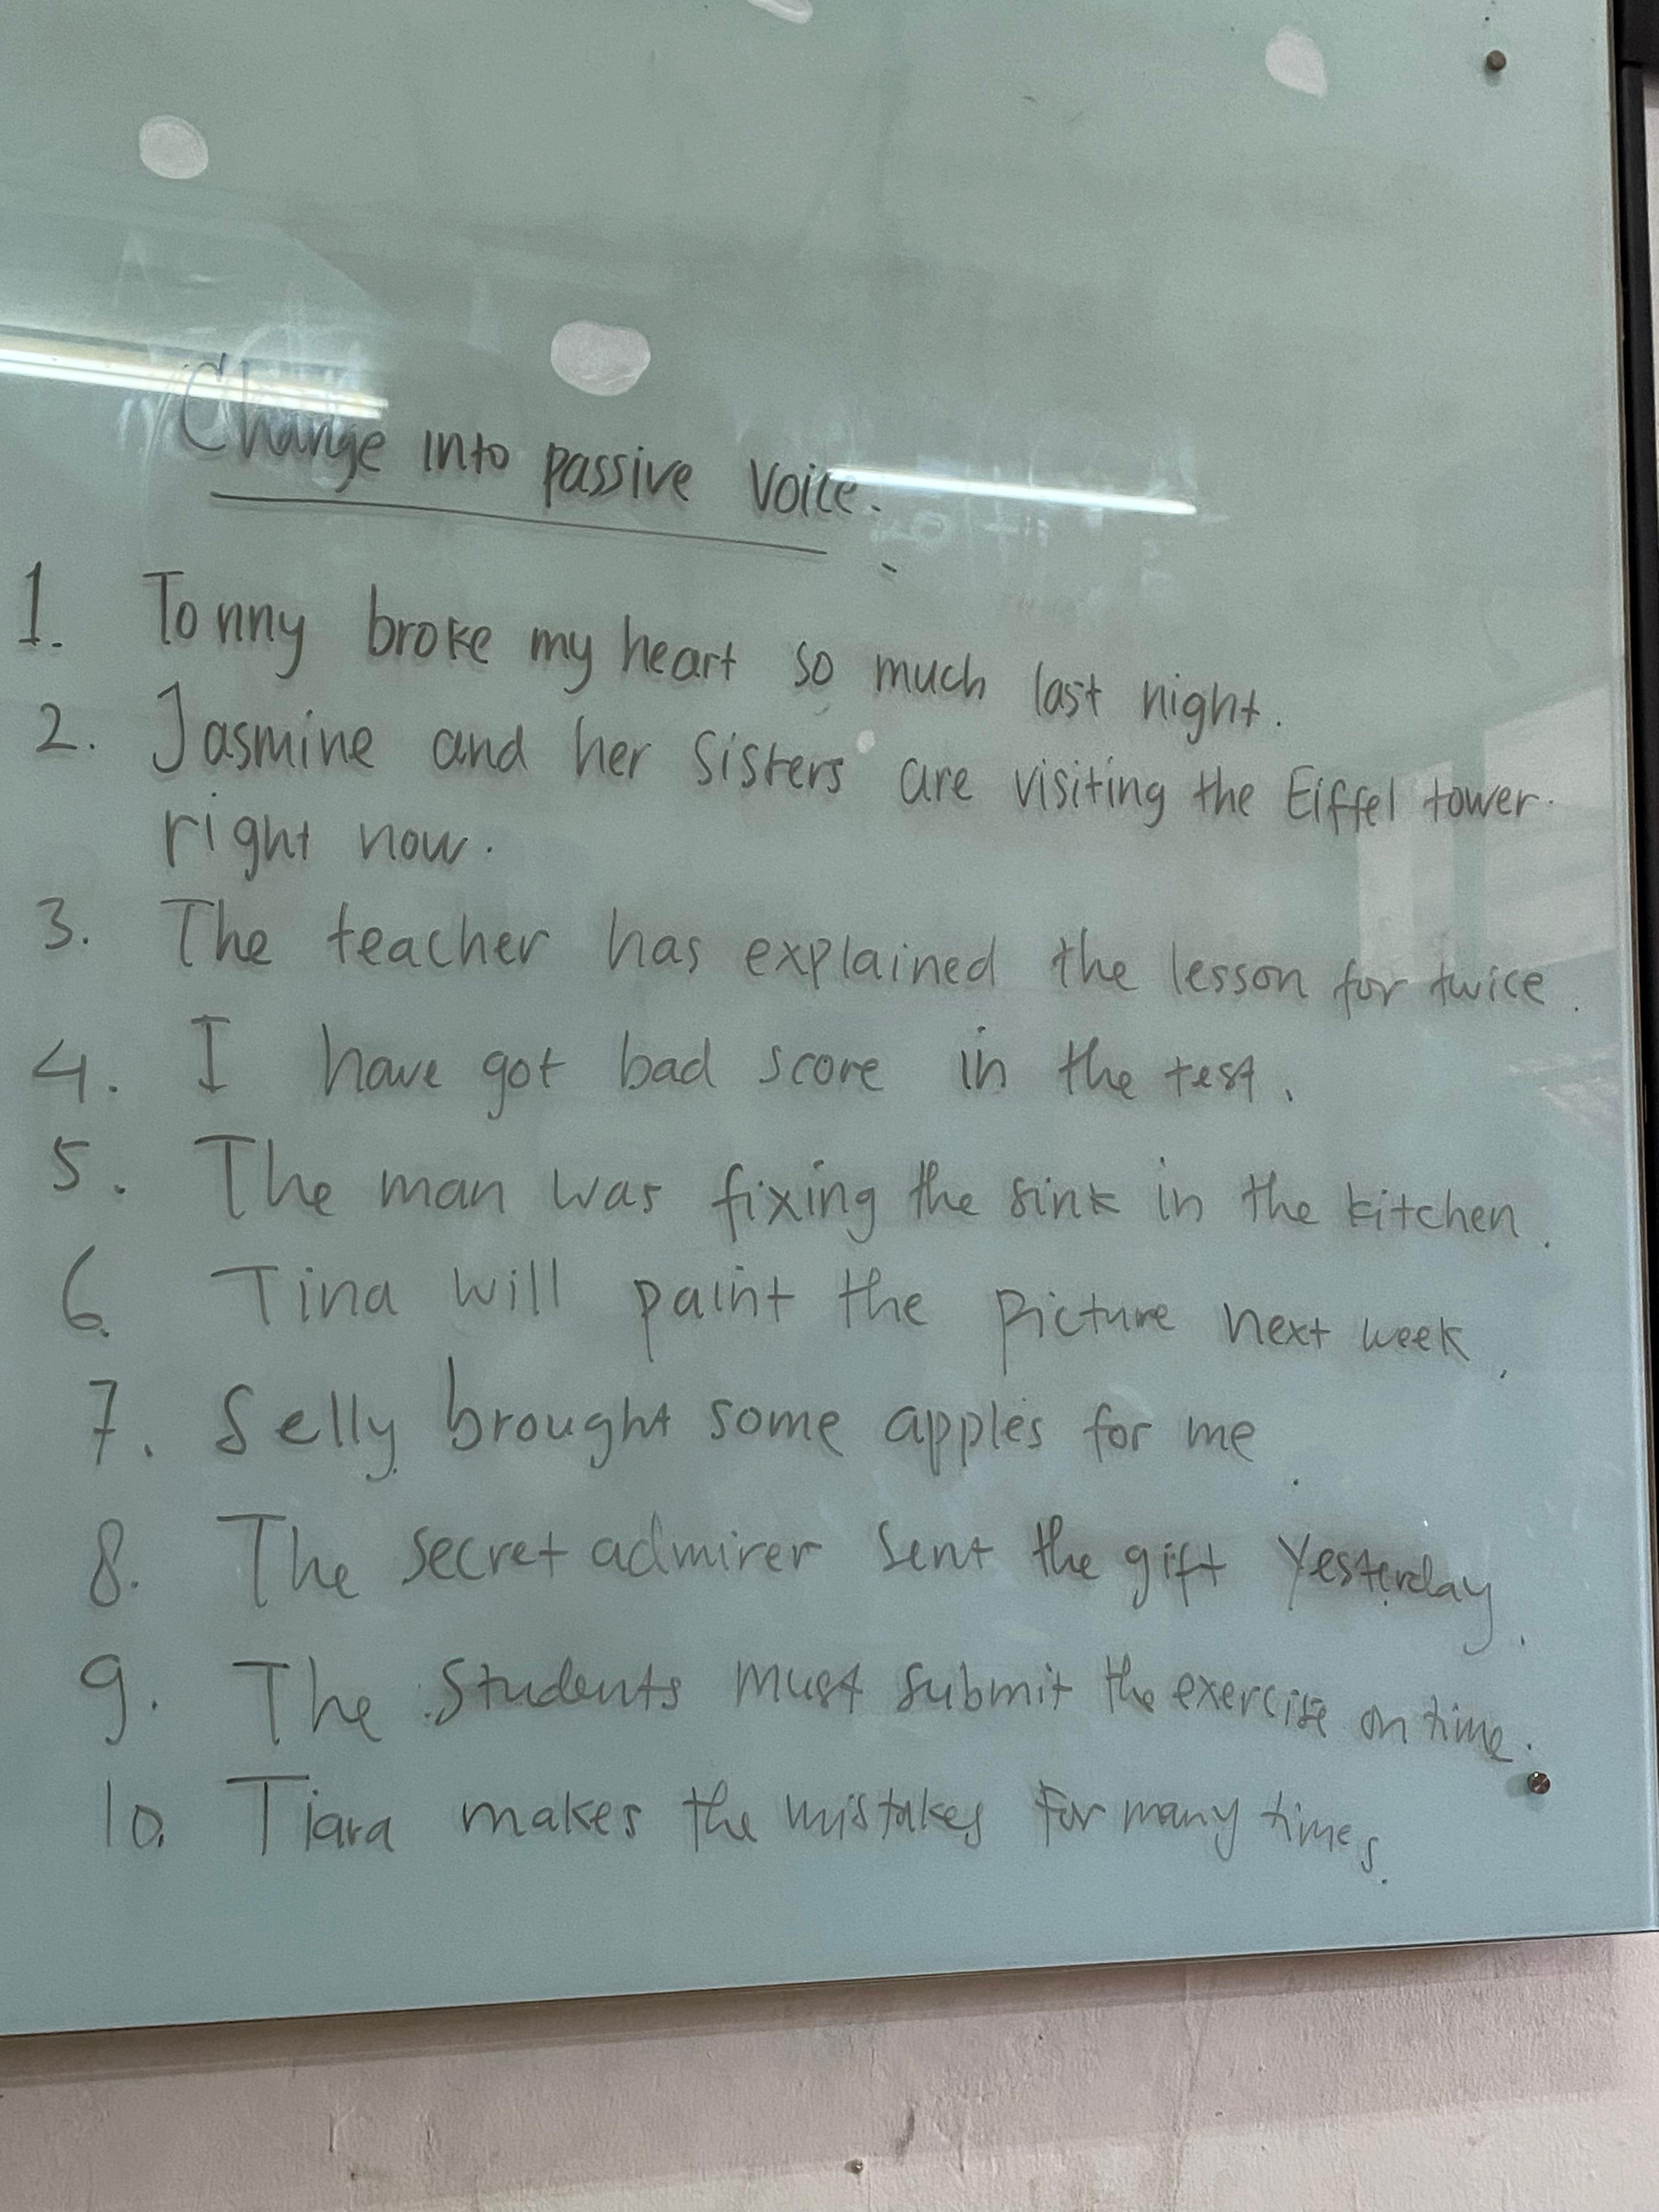 Change into passive voice.
1. Tonny broke my heart so much last night.
2. Jasmine and her sisters are visiting the Eiffel tower.
right now.
3. The teacher has explained the lesson for twice.
4. I have got bad score in the test.
5. The man was fixing the sink in the kitchen.
6. Tina will paint the picture next week.
7. Selly brought some apples for me.
8. The secret admirer sent the gift yesterday.
9. The students must submit the exercise on time.
10. Tiara makes the mistakes for many times.